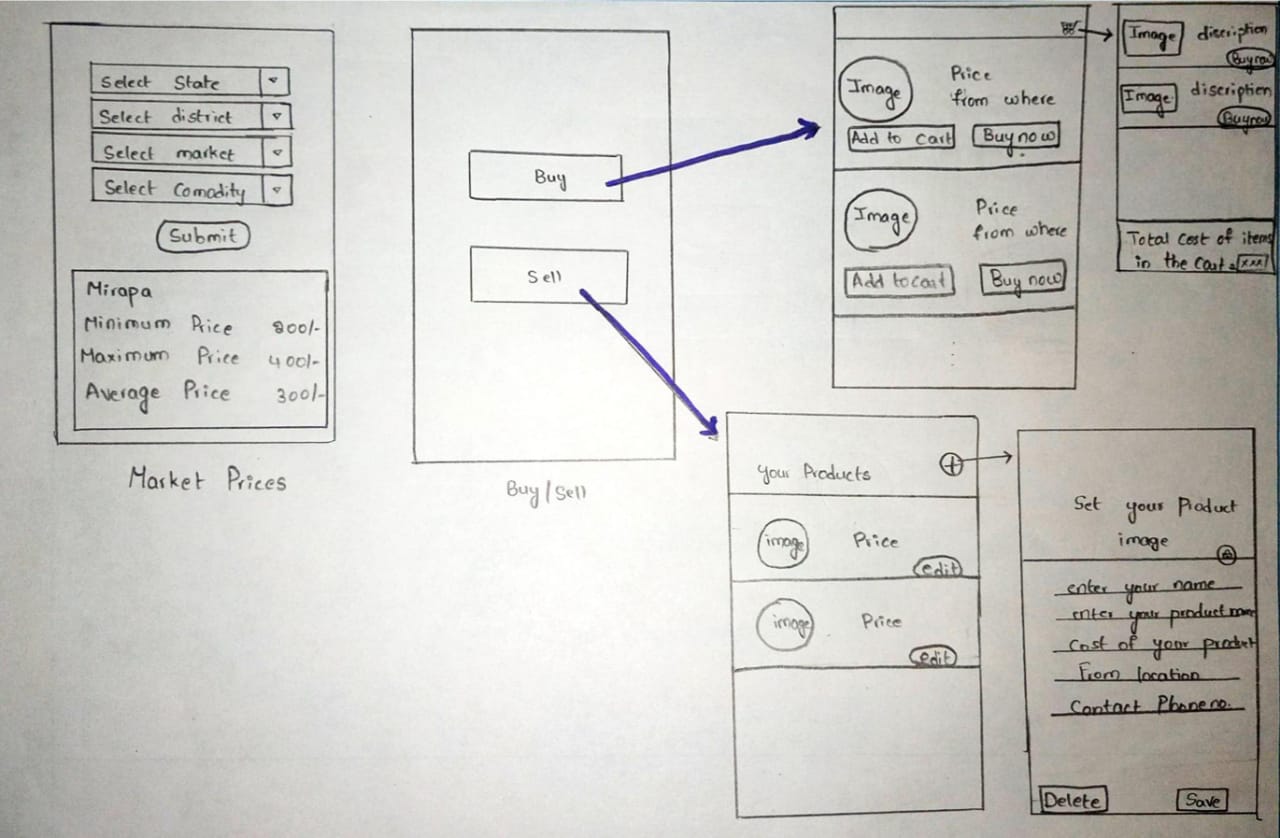 Select State
Select district
Select market
Select Comodity
Submit
Mirapa
Minimum Price 200/-
Maximum Price 400/-
Average Price 300/-
Market Prices
Buy
Sell
Buy/Sell
Image
Price
from where
Add to cart
Buy now
Image
Price
from where
Add to cart
Buy now
Image discription
Buy now
Image discription
Buy now
Total cost of items
in the cart : xxx/
Your Products
image Price
edit
image Price
edit
Set your Product
image
enter your name
enter your product name
Cost of your product
From location
Contact Phone no.
Delete Save